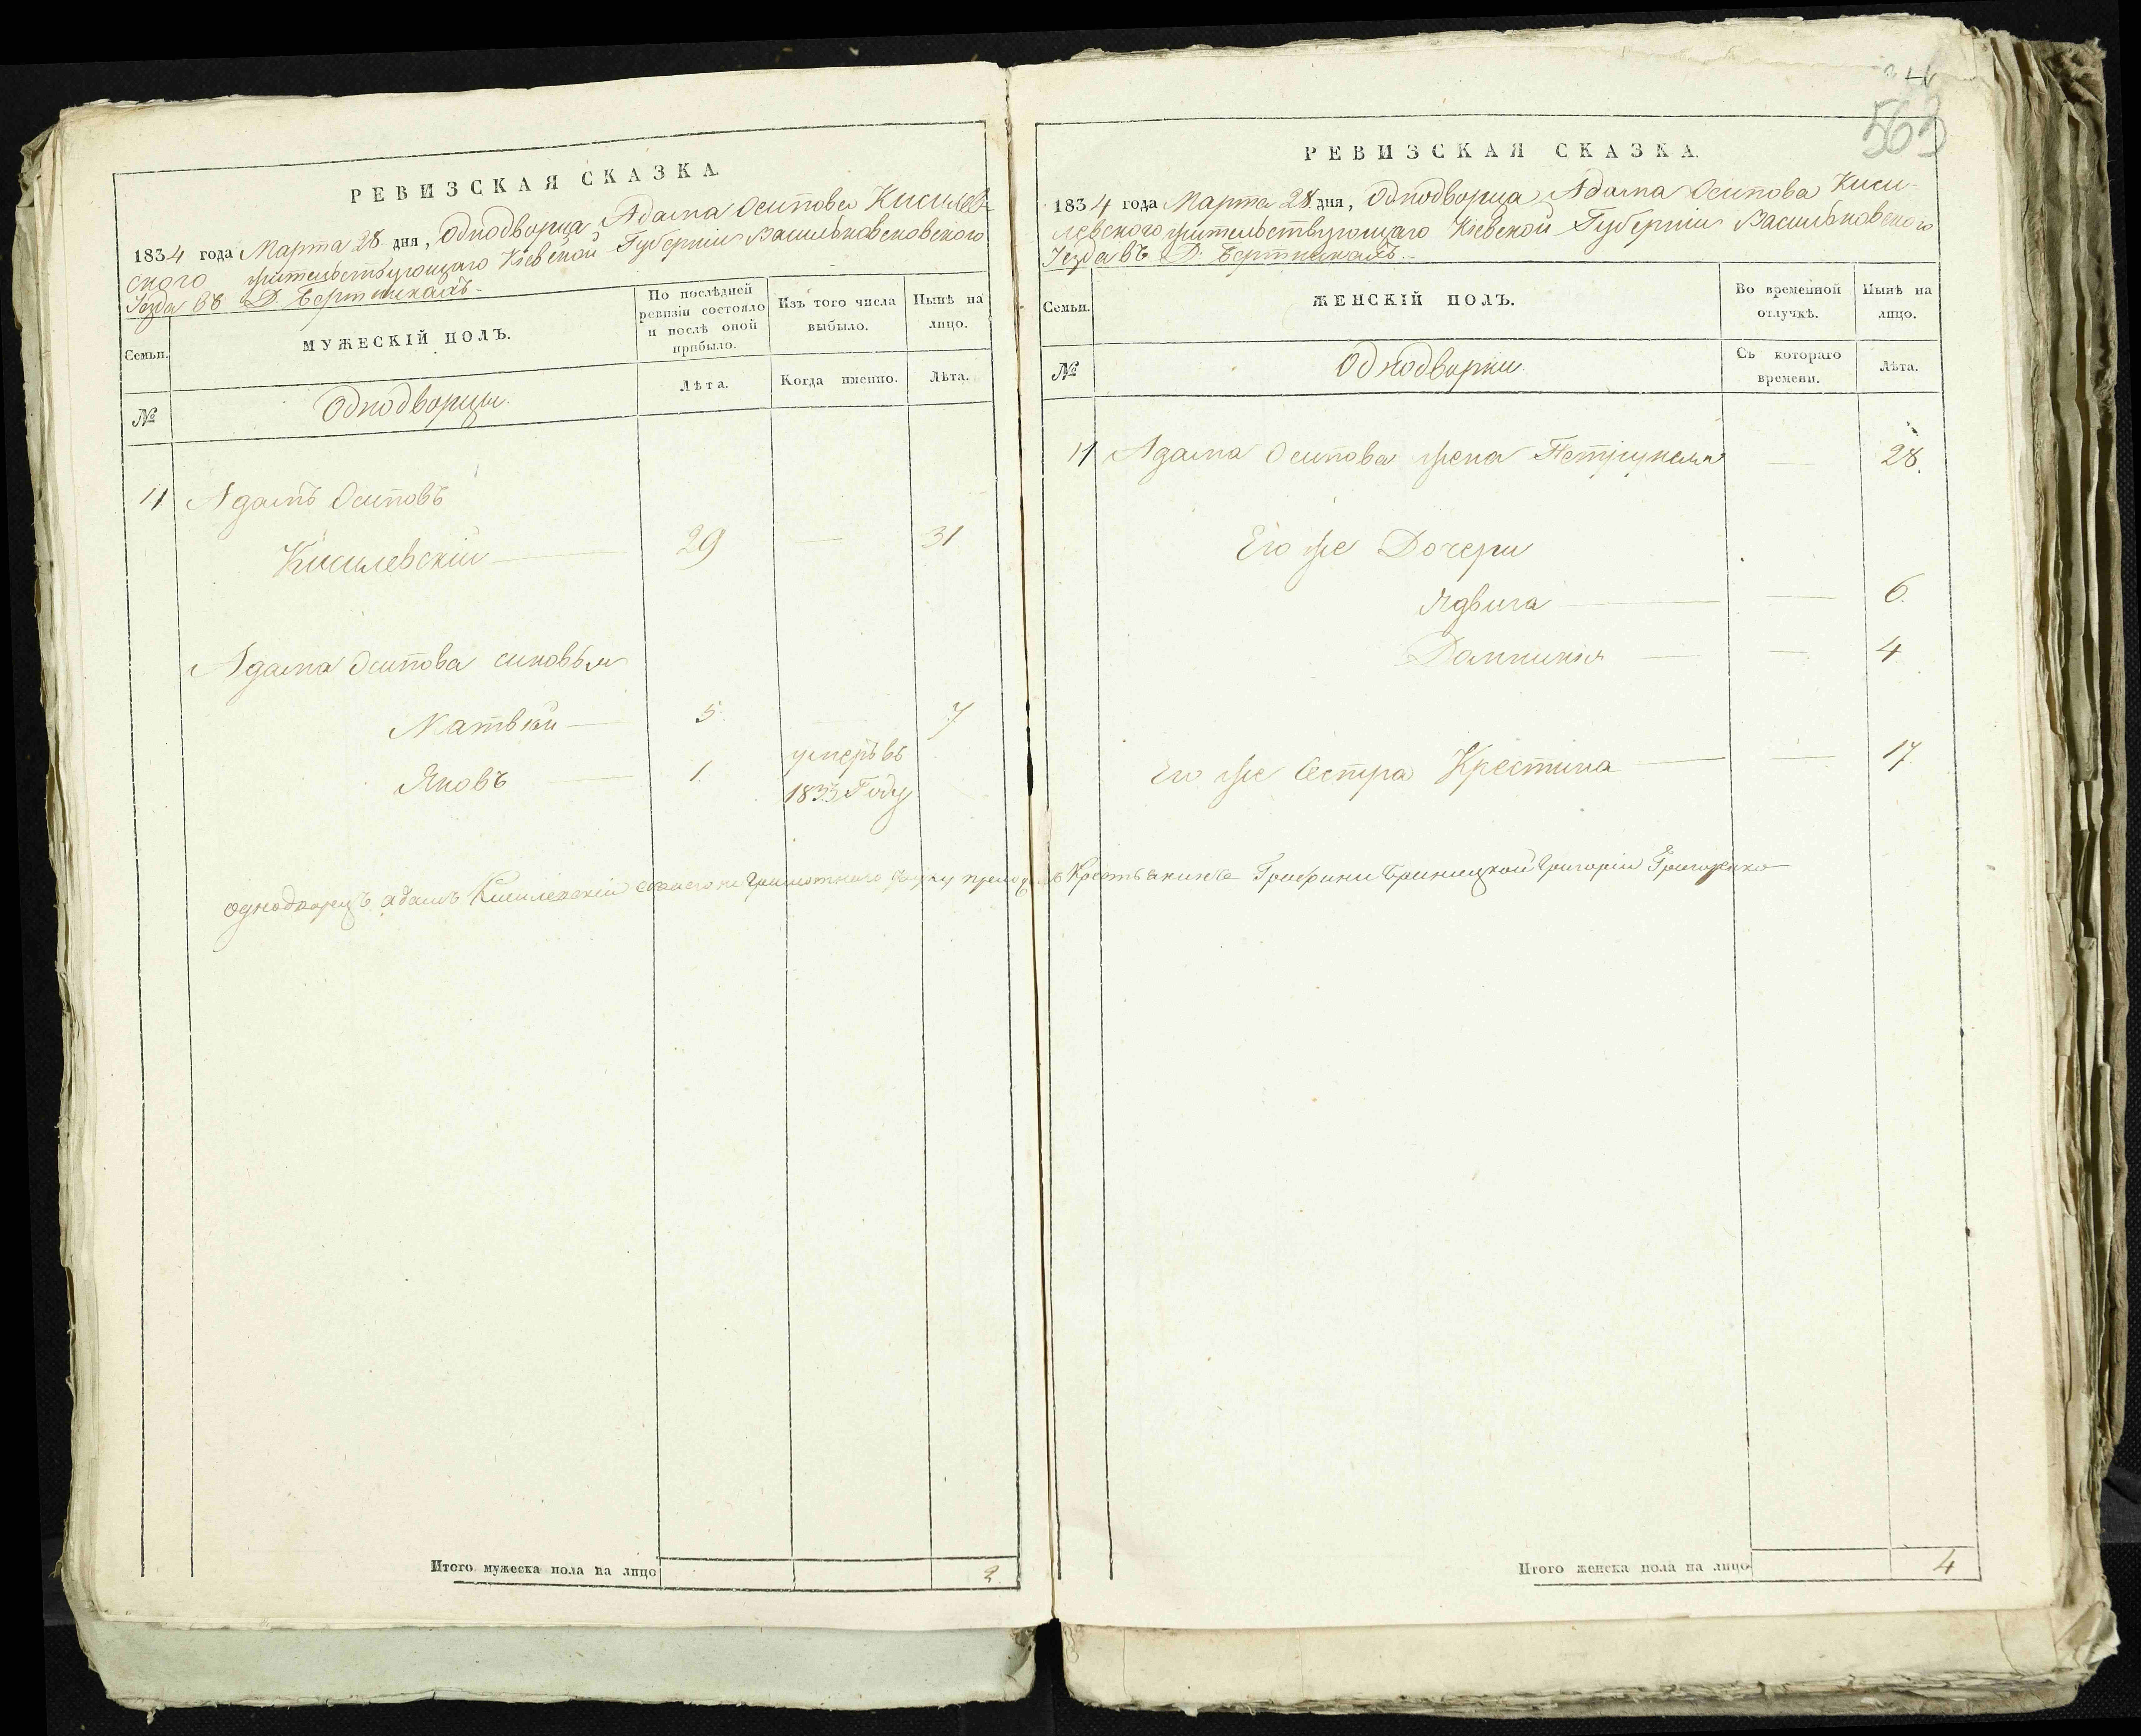 РЕВИЗСКАЯ СКАЗКА
1834 года Марта 28 дня, Однодворца Адама Осипова Кисилев-
ского жительствующаго Кіевской Губерніи Васильковсковского
Уезда въ Д. Бертникахъ
Семьи.
МУЖЕСКІЙ ПОЛЪ.
По послѣдней ревизіи состояло и послѣ оной прибыло.
Изъ того числа выбыло.
Нынѣ на лицо.
№
Однодворцы.
Лѣта.
Когда именно.
Лѣта.
11 Адамъ Осиповъ
Кисилевскій 29 — 31
Адама Осипова сыновья
Матвѣй 5 7
Яковъ 1. умеръ въ
1833 Году
Однодворецъ Адамъ Кисилевскій
Итого мужеска пола на лицо 2.
563
РЕВИЗСКАЯ СКАЗКА.
1834 года Марта 28 дня, Однодворца Адама Осипова Киси-
левского жительствующаго Кіевской Губерніи Васильковского
Уезда въ Д. Бертникахъ
Семьи.
ЖЕНСКІЙ ПОЛЪ.
Во временной отлучкѣ.
Нынѣ на лицо.
№
Однодворки
Съ котораго времени.
Лѣта.
11 Адама Осипова жена Петрунеля — 28.
Его же Дочери
Ядвига — 6.
Домникія — 4
Его же Сестра Крестина — 17
Григорій
Итого женска пола на лицо 4